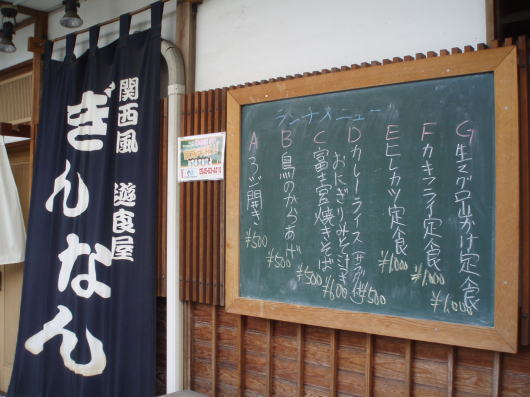 関西風 遊食屋
ぎんなん
ランチメニュー
A あじ開き ¥500
B 鳥のからあげ ¥500
C 富士宮焼きそば ¥500
おにぎりみそ汁つき ¥600
D カレーライス サラダ付 ¥500
E ヒレカツ定食 ¥1,000
F カキフライ定食 ¥1,000
G 生マグロ山かけ定食 ¥1,000